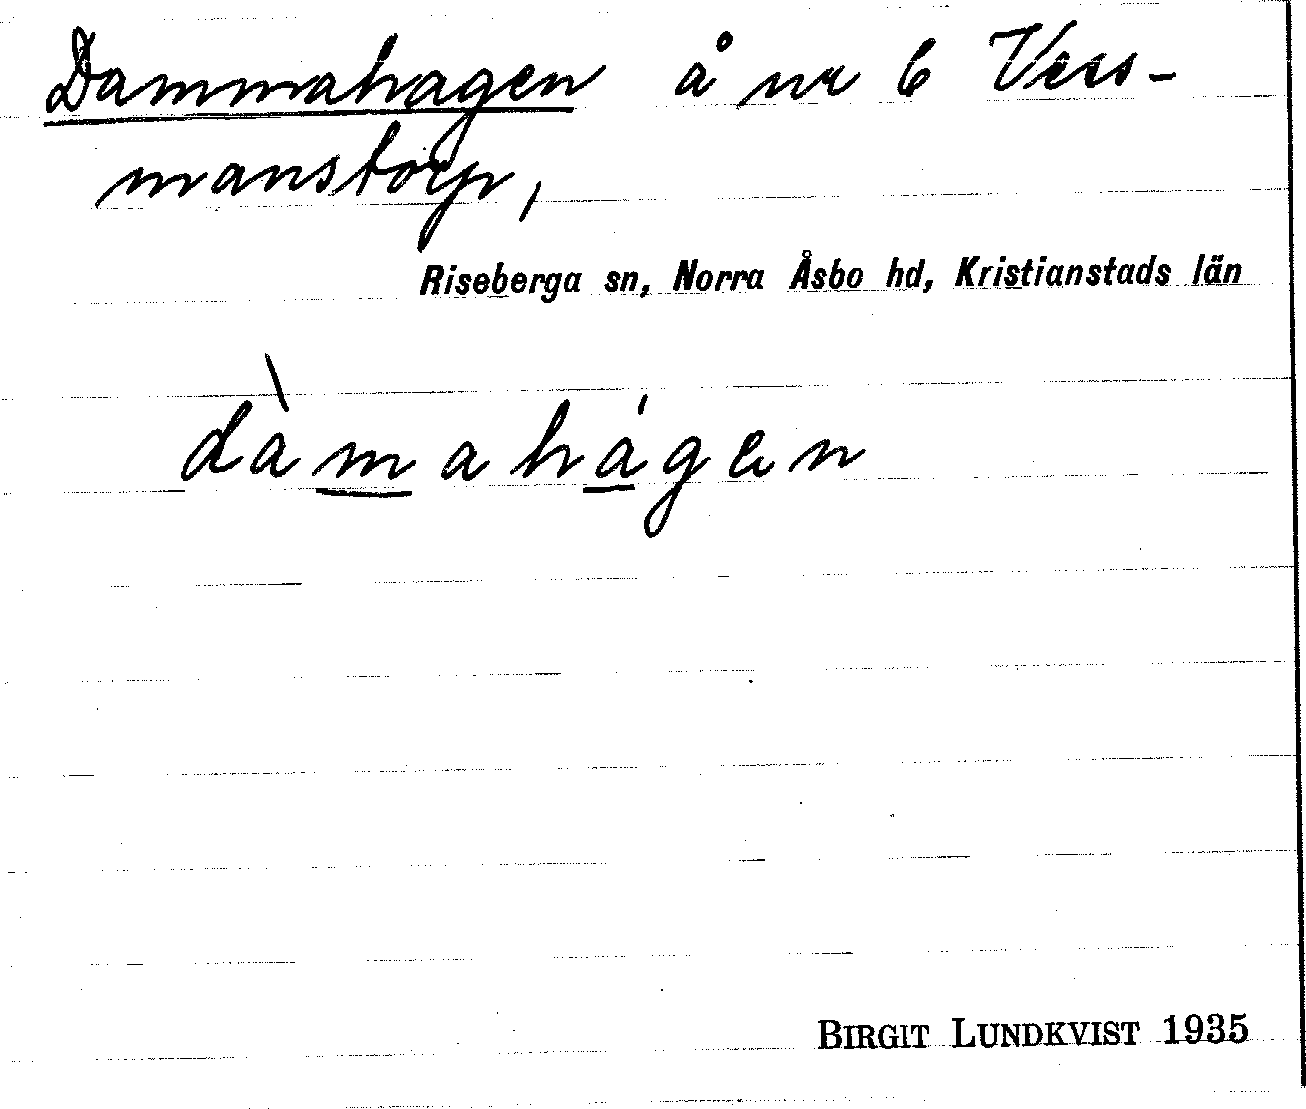 Dammahagen å nr 6 Vess-
manstorp,
Riseberga sn, Norra Åsbo hd, Kristianstads län
dàmahágen
BIRGIT LUNDKVIST 1935